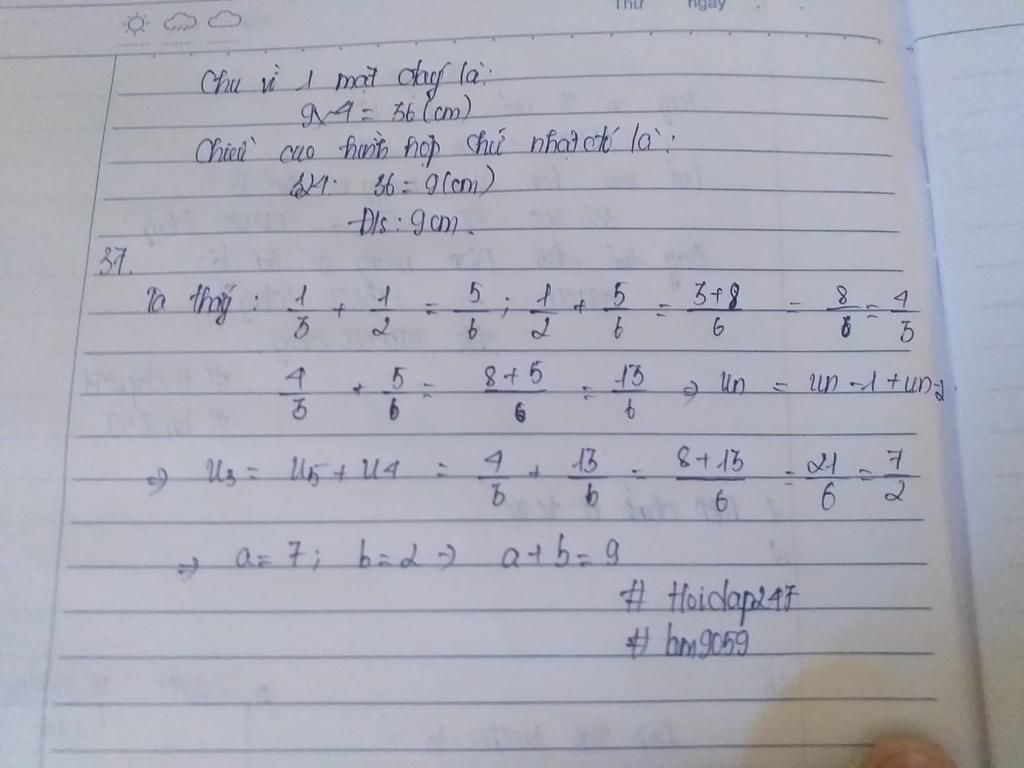 Thứ ngày
Chu vi 1 mặt đáy là:
9x4 = 36 (cm)
Chiều cao hình hộp chữ nhật đó là:
324: 36 = 9 (cm)
Đ/s: 9 cm.
37.
Ta thấy: 1/3 + 1/2 = 5/6; 1/2 + 5/6 = 3+8/6 = 8/6 = 4/3
4/3 + 5/6 = 8+5/6 = 13/6 => un = un-1 + un-2.
=> u3 = u5 + u4 = 4/3 + 13/6 = 8+13/6 = 21/6 = 7/2
=> a = 7; b = 2 => a+b = 9
# Hoidap247
# bm9059